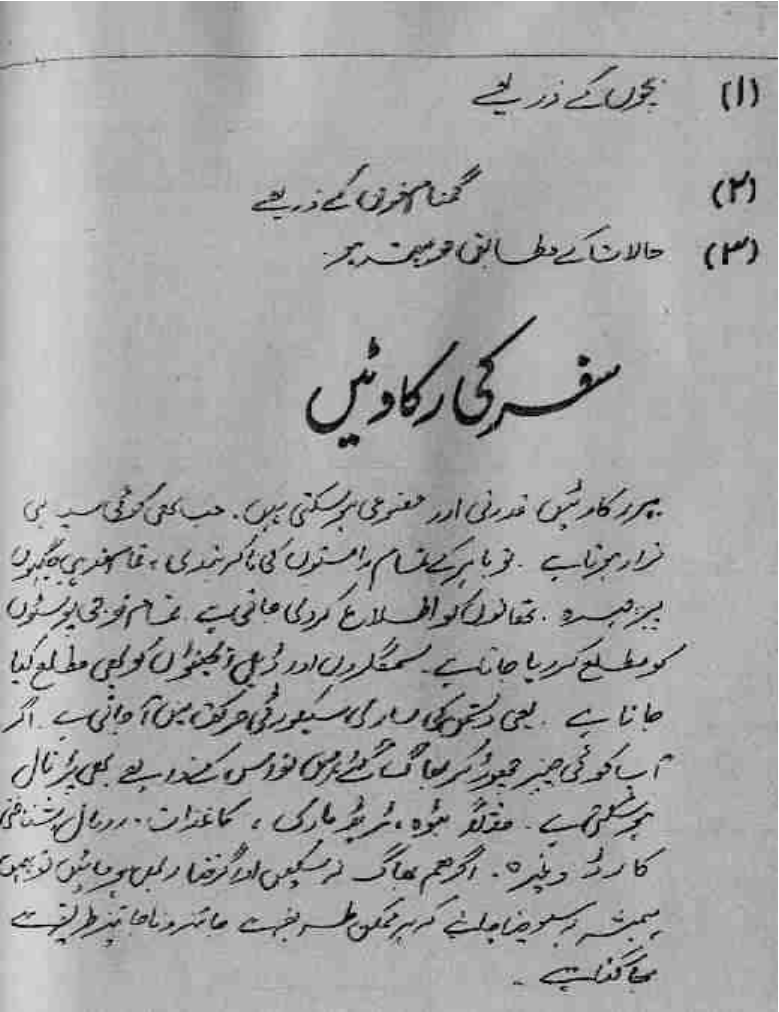 (۱) بچوں کے ذریعے
(۲) گمنام خوں کے ذریعے
(۳) حالات کے مطابق جو میسر ہو۔
سفر کی رکاوٹیں
یہ رکاوٹیں قدرتی اور مصنوعی ہو سکتی ہیں۔ جب بھی کوئی
فرار ہوتا ہے۔ تو باہر کے تمام راستوں کی ناکہ بندی، تمام جگہوں
پر پہرہ۔ تھانوں کو اطلاع کر دی جاتی ہے۔ تمام فوجی پوسٹوں
کو مطلع کر دیا جاتا ہے۔ سمگلروں اور ڈبل ایجنٹوں کو بھی مطلع کیا
جاتا ہے۔ یعنی دشمن کی ساری سیکورٹی حرکت میں آ جاتی ہے۔ اگر
آپ کوئی چیز چھوڑ کر بھاگ گئے ہیں تو اس کے ذریعے بھی پڑتال
ہو سکتی ہے۔ مثلاً بٹوہ، مارک، کاغذات۔ رومال شناختی
کارڈ وغیرہ۔ اگر ہم بھاگ نہ سکیں اور گرفتار ہو جائیں تو ہمیں
ہمیشہ یہ سوچنا چاہئے کہ ہر ممکن طریقے جائز و ناجائز طریقے سے
بھاگنا ہے۔